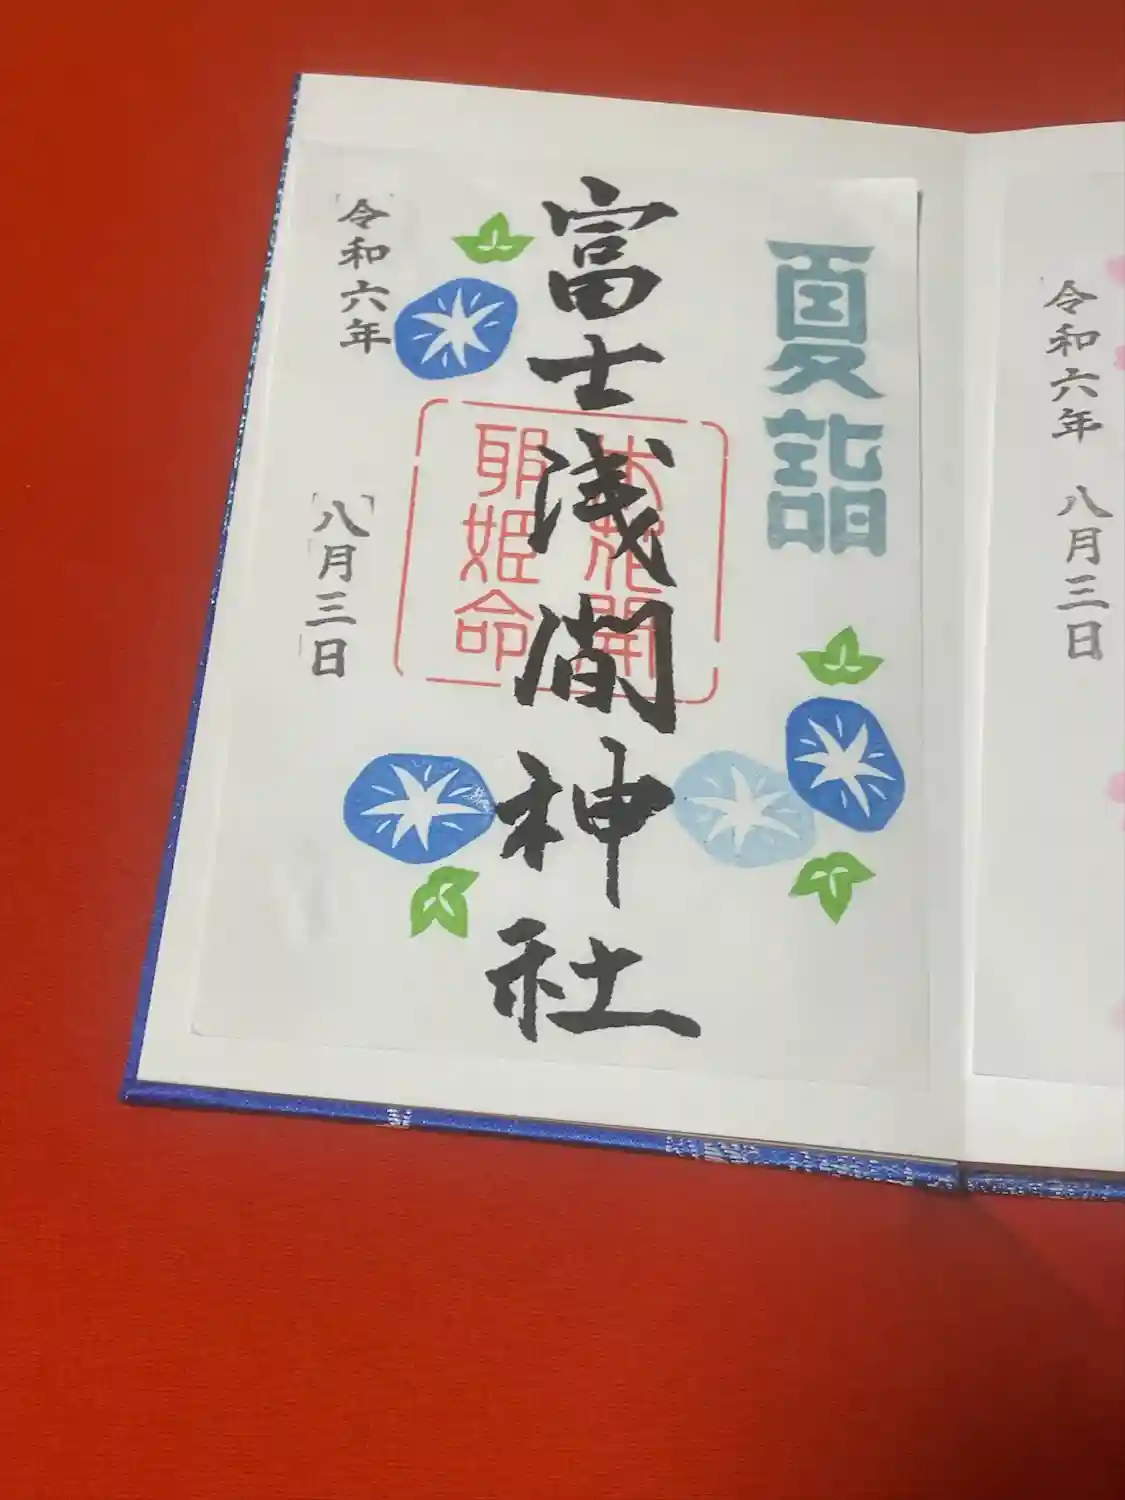 令和六年
八月三日
夏詣
富士浅間神社
木花開
耶姫命
令和六年
八月三日